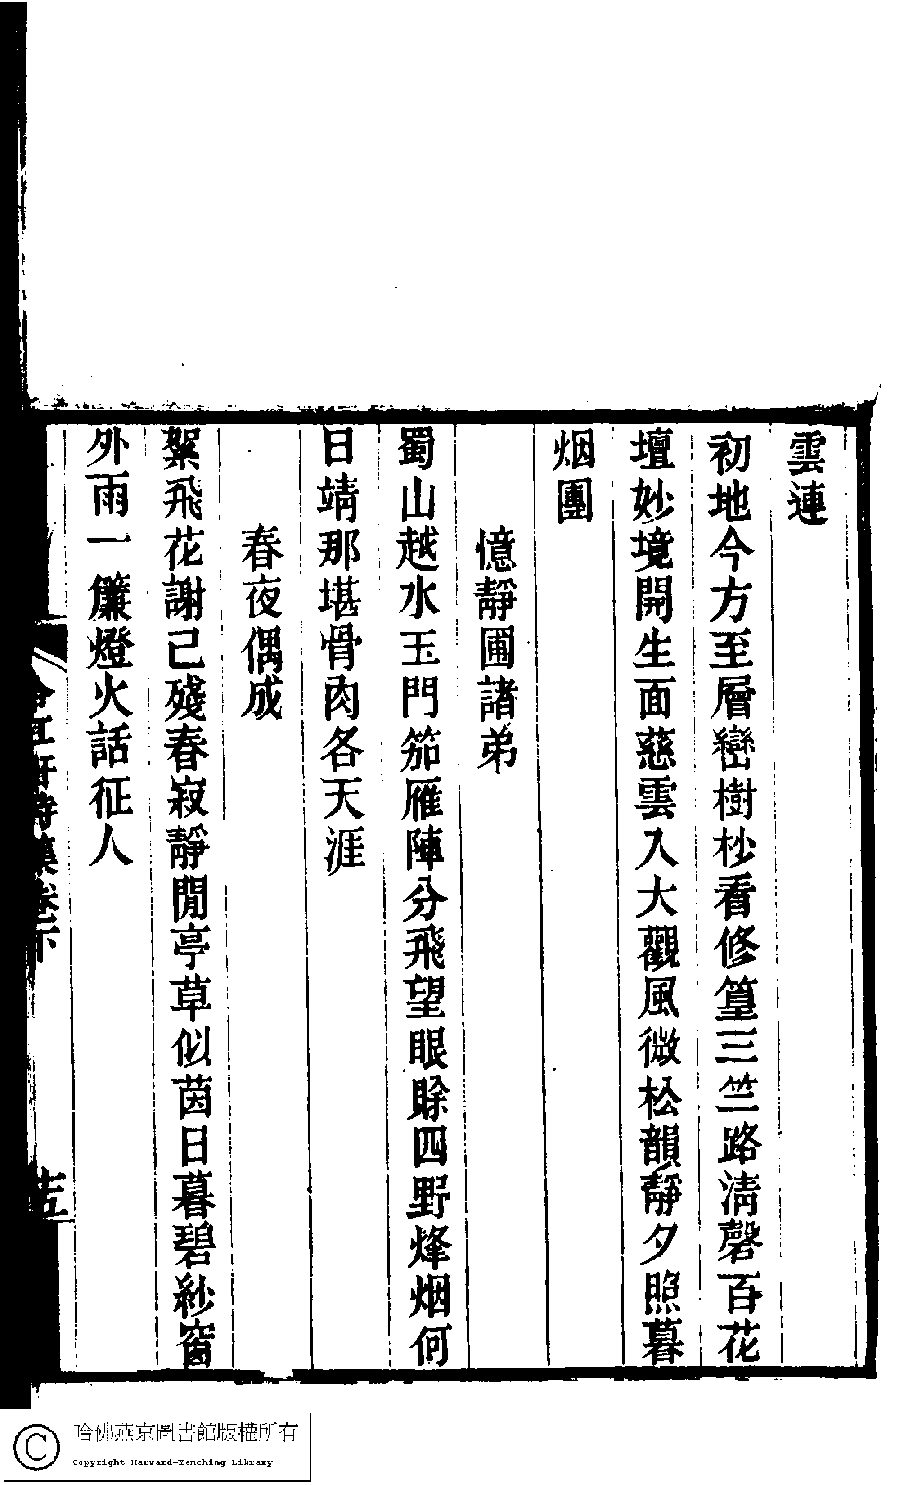 雲連
初地今方至層巒樹杪看修篁三竺路淸磬百花
壇妙境開生面慈雲入大觀風微松韻靜夕照暮
烟團
憶靜圃諸弟
蜀山越水玉門笳雁陣分飛望眼賒四野烽烟何
日靖那堪骨肉各天涯
春夜偶成
絮飛花謝已殘春寂靜閒亭草似茵日暮碧紗窗
外雨一簾燈火話征人
詩集卷下
十五
哈佛燕京圖書館版權所有
Copyright Harvard-Yenching Library